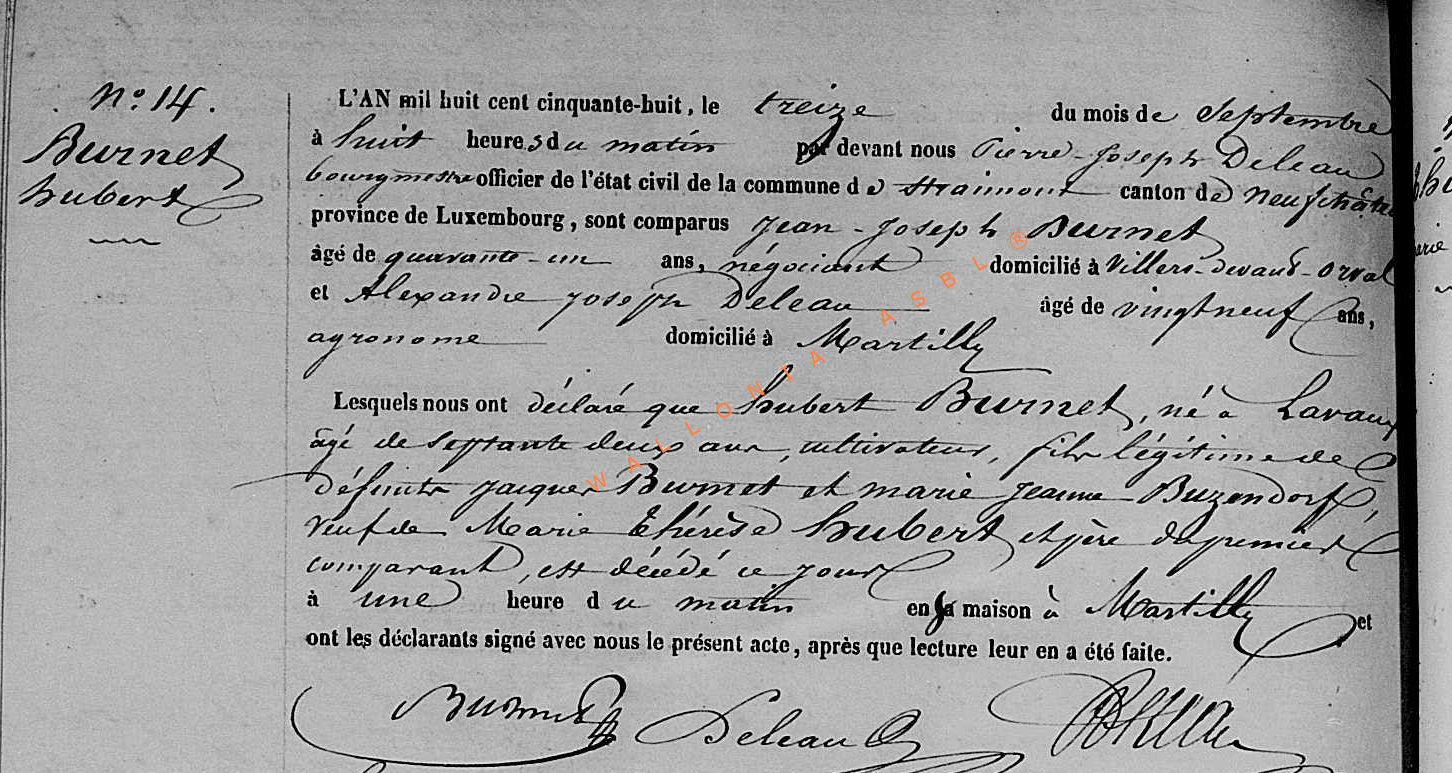 N.o 14.
Burnet
hubert
L'AN mil huit cent cinquante-huit, le treize du mois de Septembre
à huit heures du matin par devant nous Pierre-Joseph Deleau
bourgmestre officier de l'état civil de la commune de Straimont canton de Neufchâteau
province de Luxembourg, sont comparus Jean-Joseph Burnet
âgé de quarante-un ans, négociant domicilié à Villers-devant-Orval
et Alexandre Joseph Deleau âgé de vingtneuf ans,
agronome domicilié à Martilly
Lesquels nous ont déclaré que hubert Burnet, né à Lavaux
âgé de septante deux ans, cultivateur, fils légitime de
défunts Jacques Burnet et marie Jeanne Buzendorf,
veuf de Marie Thérèse hubert et père du premier
comparant, est décédé ce jour
à une heure du matin en sa maison à Martilly et
ont les déclarants signé avec nous le présent acte, après que lecture leur en a été faite.
Burnet Deleau
WALLONIA ASBL ®